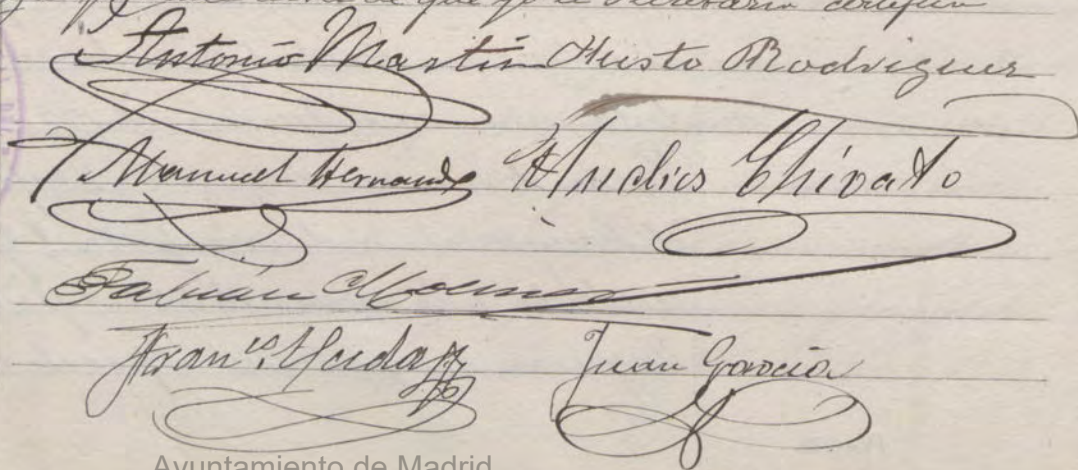 que yo el Secretario certifico
Antonio Martín Justo Rodriguez
Manuel Hernandz Andres Chivato
Fabián
Franco. Juan García
Ayuntamiento de Madrid